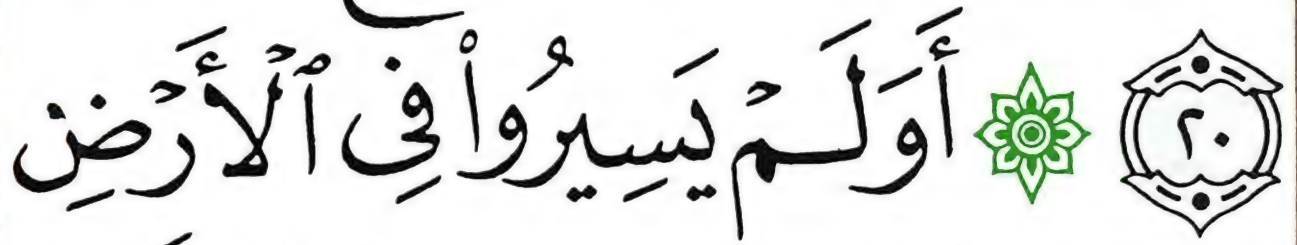 ٢٠ ۞ أَوَلَمْ يَسِيرُوا۟ فِى ٱلْأَرْضِ